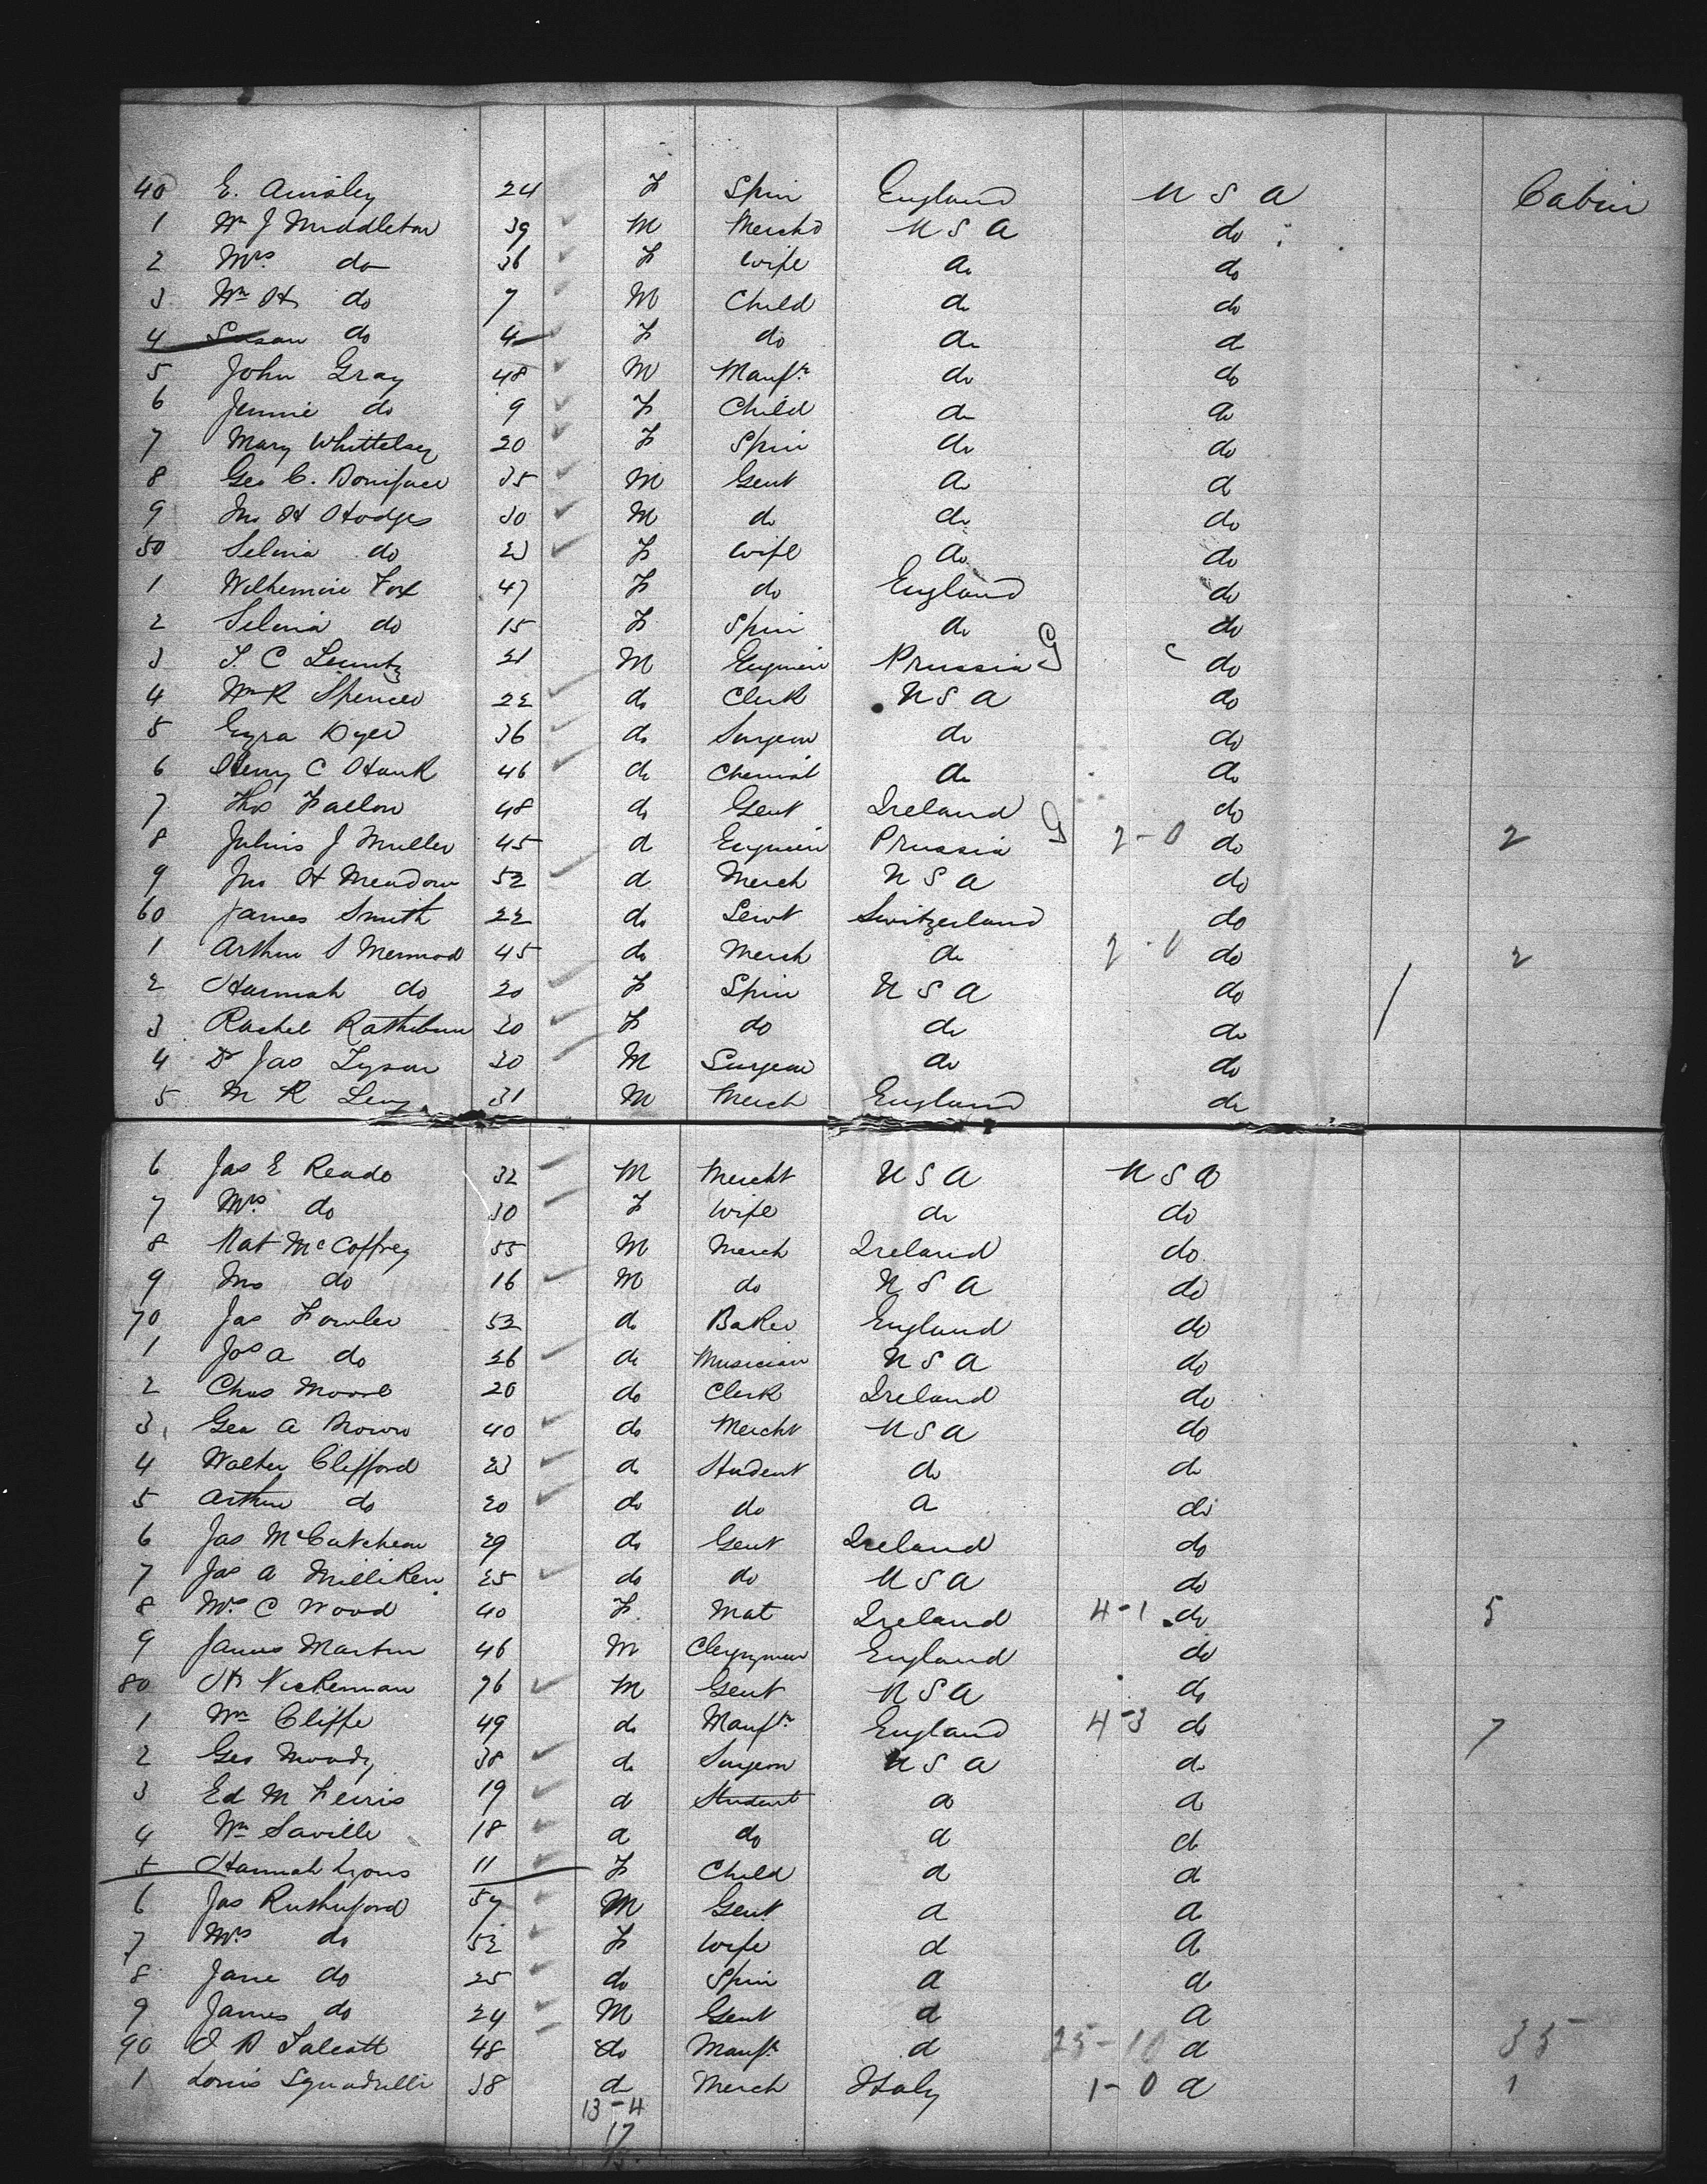 40 E. Ainsley 24 F Spin England U S A Cabin
1 Wm J Middleton 39 M Mercht U S A do
2 Mrs do 36 F Wife do do
3 Wm H do 7 M Child do do
4 Susan do 4 F do do do
5 John Gray 48 M Manfr do do
6 Jennie do 9 F Child do do
7 Mary Whittelsey 20 F Spin do do
8 Geo C. Boniface 35 M Gent do do
9 Jno H Hodges 30 M do do do
50 Selina do 23 F Wife do do
1 Wilhemine Fox 47 F do England do
2 Selina do 15 F Spin do do
3 C 21 M Engineer Prussia G do
4 Wm R Spencer 22 do Clerk U S A do
5 Ezra Dyer 36 do Surgeon do do
6 Henry C Hauk 46 do Chemist do do
7 Thos Fallon 48 do Gent Ireland do
8 Julius J Muller 45 do Engineer Prussia G 2-0 do 2
9 Jno H Meadow 52 do Merch U S A do
60 James Smith 22 do Switzerland do
1 Arthur S Mermod 45 do Merch do 2-0 do 2
2 Hannah do 20 F Spin U S A do
3 Rachel Rathibun 30 F do do do
4 Dr Jas Tyson 30 M Surgeon do do
5 M R Levy 31 M Merch England do
6 Jas E Reado 32 M Mercht U S A U S A
7 Mrs do 30 F Wife do do
8 Nat McCaffrey 55 M Merch Ireland do
9 Jno do 16 M do U S A do
70 Jas Fowler 52 do Baker England do
1 Jos A do 26 do Musician U S A do
2 Chas Moore 20 do Clerk Ireland do
3 Geo A Brown 40 do Mercht U S A do
4 Walter Clifford 23 do Student do do
5 Arthur do 20 do do do do
6 Jas McCutcheon 29 do Gent Ireland do
7 Jas A Milliken 25 do do U S A do
8 Mrs C Wood 40 F Mat Ireland 4-1 do 5
9 James Martin 46 M Clergyman England do
80 H Vickerman 76 M Gent U S A do
1 Wm Cliffe 49 do Manfr England 4-3 do 7
2 Geo Moody 38 do Surgeon U S A do
3 Ed M Ferris 19 do Student do do
4 Wm Saville 18 do do do do
5 Hannah Lyons 11 F Child do do
6 Jas Rutherford 57 M Gent do do
7 Mrs do 52 F Wife do do
8 Jane do 25 do Spin do do
9 James do 24 M Gent do do
90 Talcott 48 do Manfr do 25-10 do 35
1 Louis Squadrilli 38 do Merch Italy 1-0 do 1
13-4
17